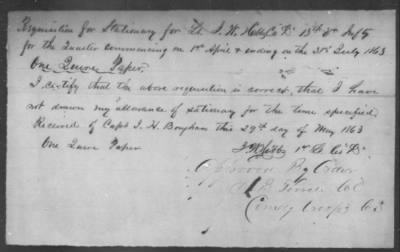 Requisition for Stationary for Lt J. W. Hebb Co D 13th Inft
for the Quarter commencing on 1st April & ending on the 31st July 1863
One Quire Paper.
I certify that the above requisition is correct, that I have
not drawn my allowance of stationary for the time specified
Received of Capt J. H. Bonham this 29th day of May 1863
One Quire Paper 1st Lt Co D
Approved By Order
Comdg troops